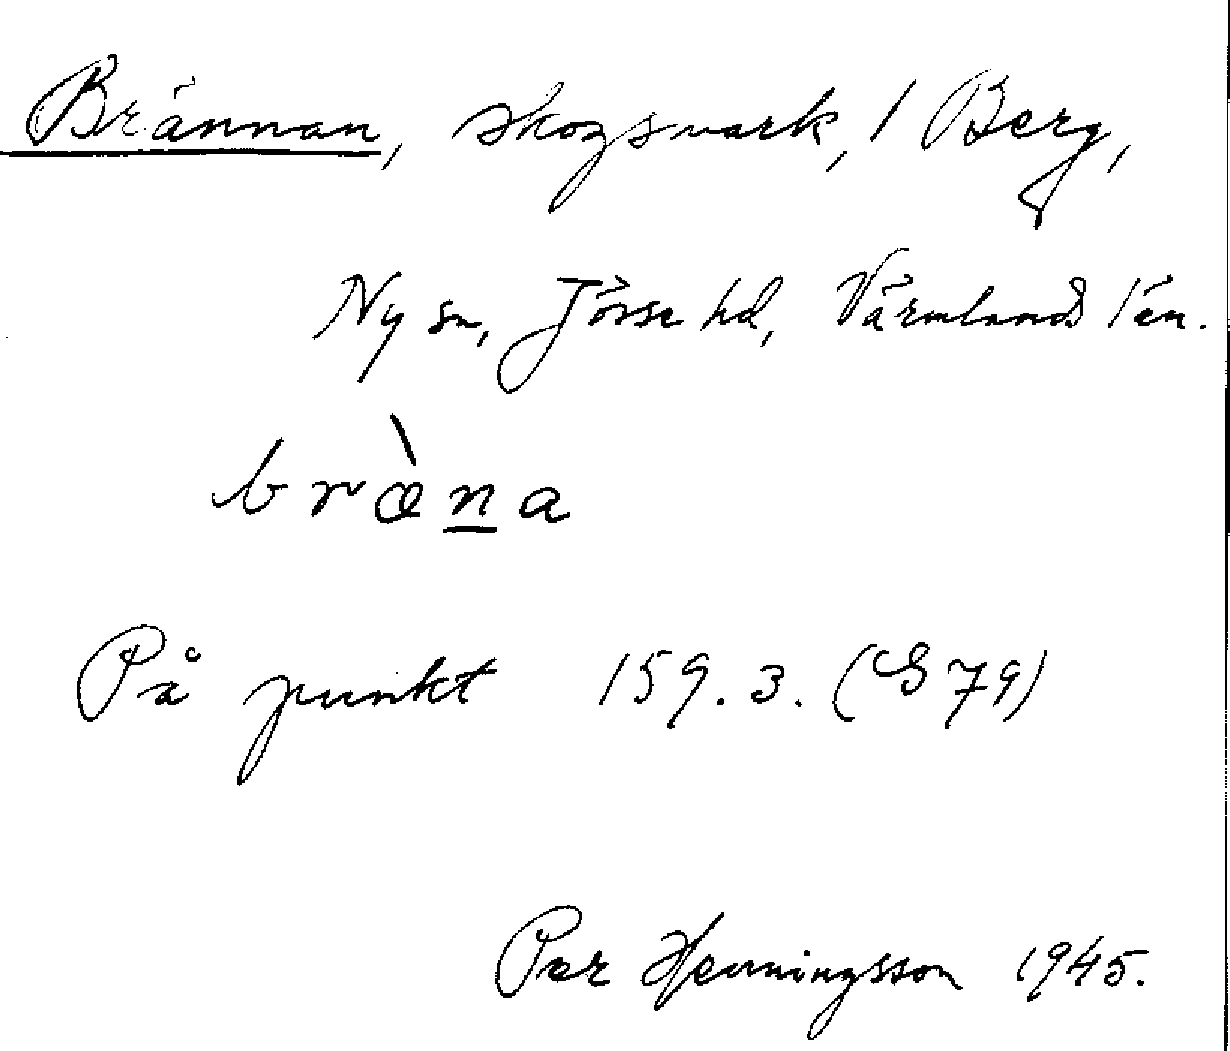 Brännan, skogsmark, / Berg,
Ny sn, Jösse hd, Värmlands län.
bræ̀na
På punkt 159.3. (S 79)
Per Henningsson 1945.